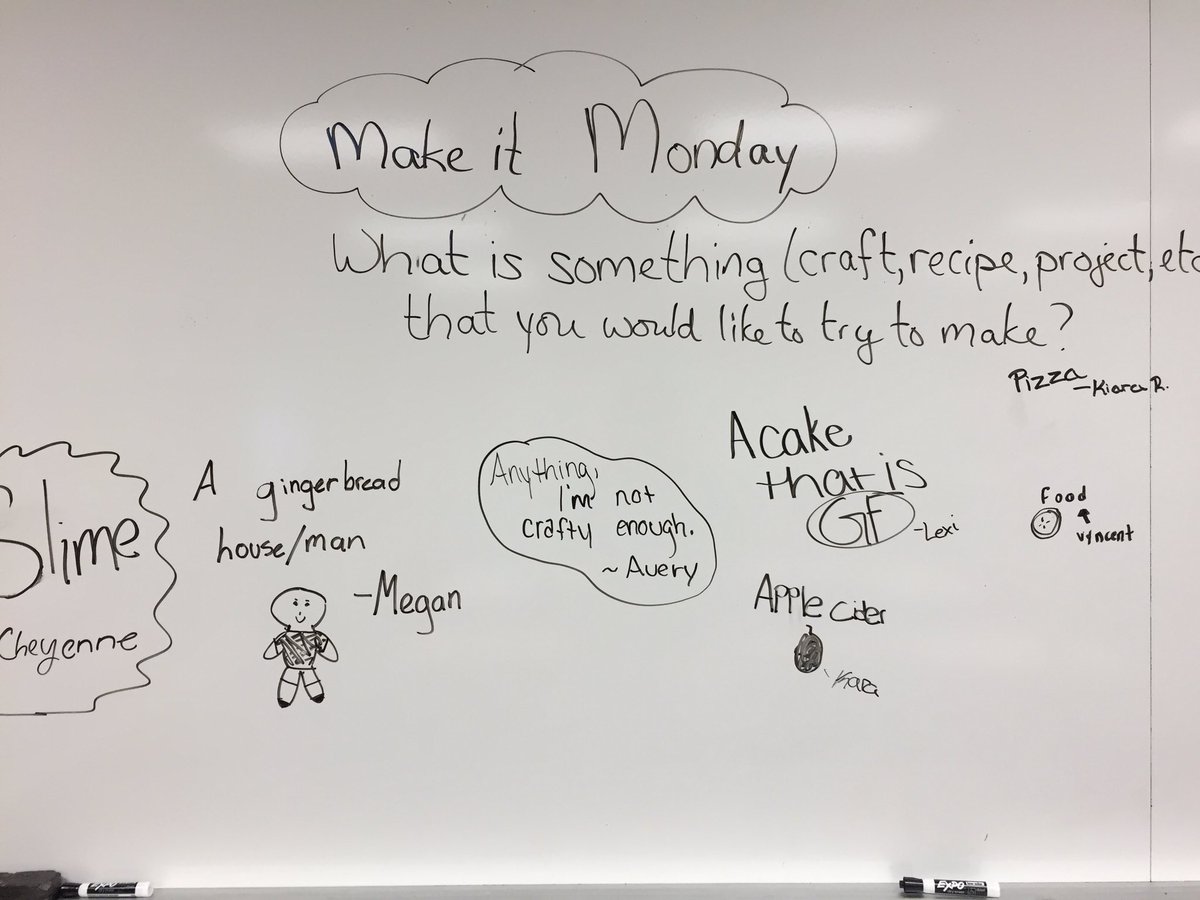 Make it Monday
What is something (craft, recipe, project, etc
that you would like to try to make?
Pizza
-Kiara R.
Slime
Cheyenne
A gingerbread
house/man
-Megan
Anything,
I'm not
crafty enough.
~ Avery
A cake
that is
GF
-Lexi
Apple Cider
Food
vyncent
EXPO
EXPO